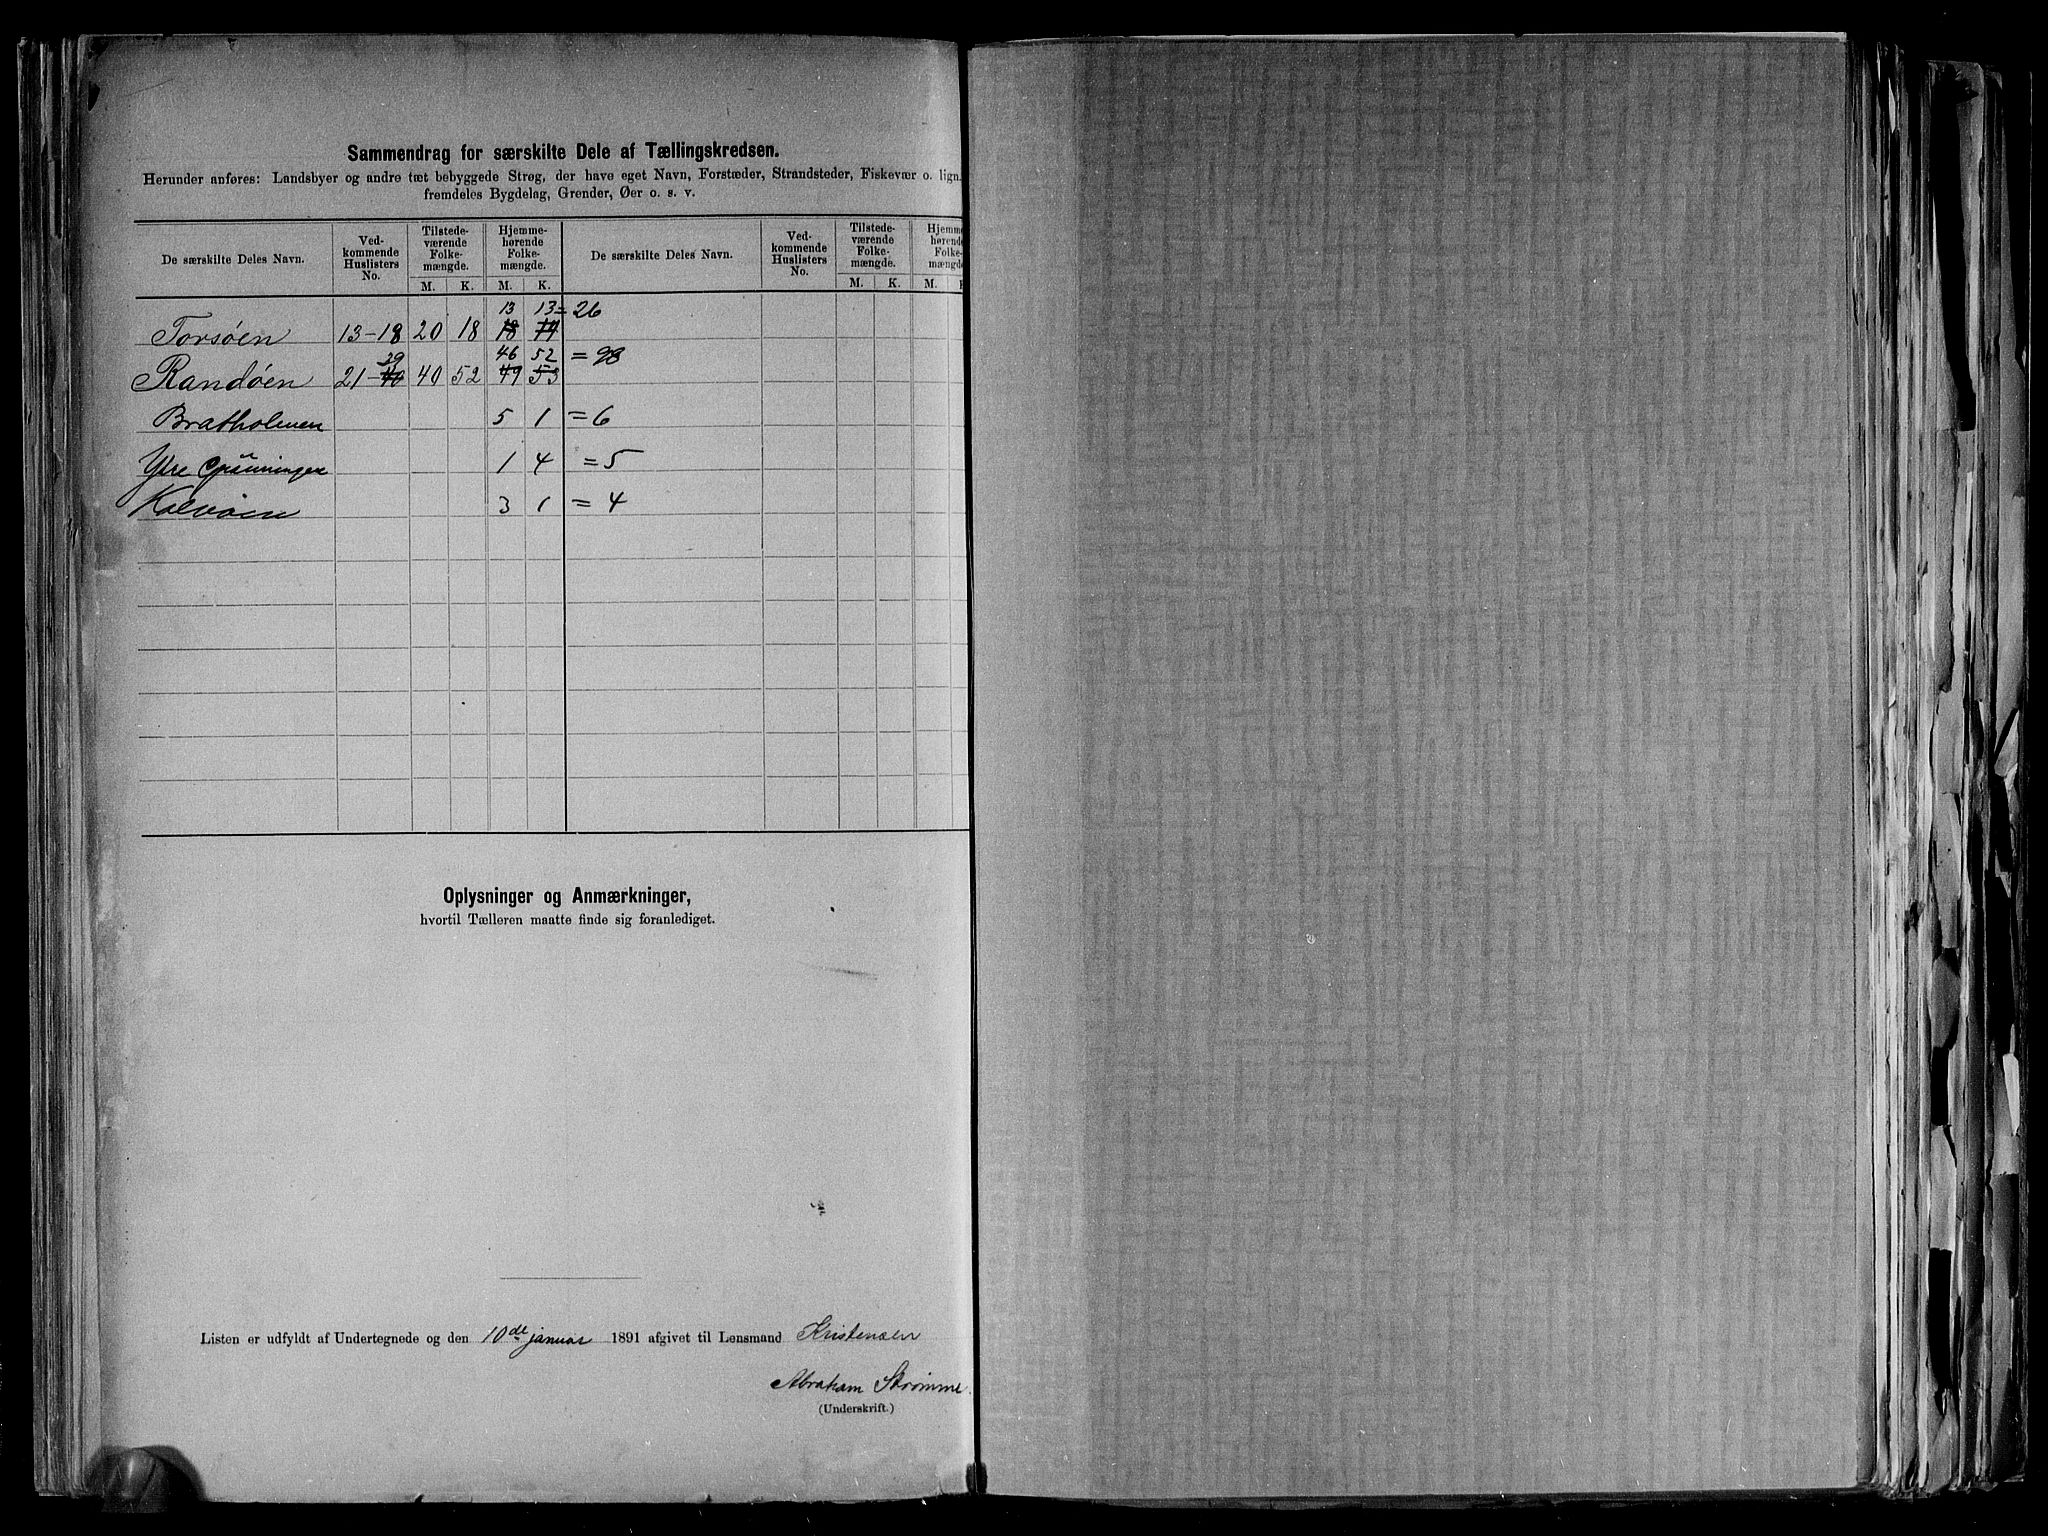 Sammendrag for særskilte Dele af Tællingskredsen.
Herunder anføres: Landsbyer og andre tæt bebyggede Strøg, der have eget Navn, Forstæder, Strandsteder, Fiskevær o. lign.
fremdeles Bygdelag, Grender, Øer o. s. v.
De særskilte Deles Navn. Ved-kommende Huslisters No. Tilstede-værende Folke-mængde. Hjemme-hørende Folke-mængde. De særskilte Deles Navn. Ved-kommende Huslisters No. Tilstede-værende Folke-mængde. Hjemme-hørende Folke-mængde
M. K. M. K. M. K. M.
13 13 = 26
Torsøen 13-18 20 18 18
39 46 52 = 98
Randøen 21-40 40 52 49 53
Bratholmen 5 1 = 6
Ytre 1 4 = 5
Kalvøen 3 1 = 4
Oplysninger og Anmærkninger,
hvortil Tælleren maatte finde sig foranlediget.
Listen er udfyldt af Undertegnede og den 10de januar 1891 afgivet til Lensmand Kristensen
Abraham Strømme.
(Underskrift.)